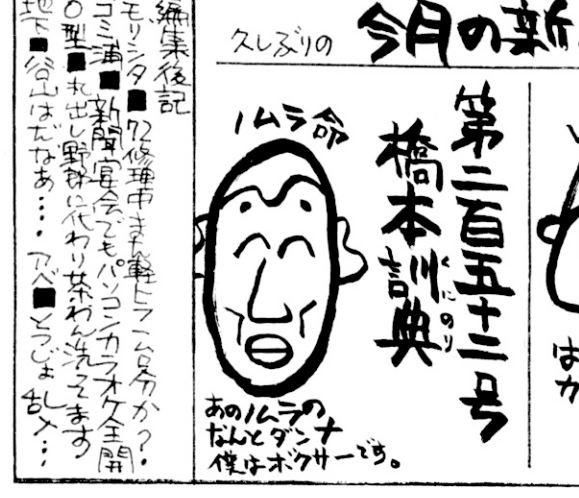 久しぶりの
今月の新
第二百五十二号
橋本訓典
くにのり
ノムラ命
あのノムラの
なんとダンナ
僕はボクサーです。
は
カ
編集後記
モリシタ■72修理中また軽トラ ム台分か?・
コミ浦■新聞宴会でもパソコンカラオケ全開
O型■丸出し野郎に代わり茶わん洗ってます
地下■谷山はだなあ・・・アベ■とつじょ乱入・・・